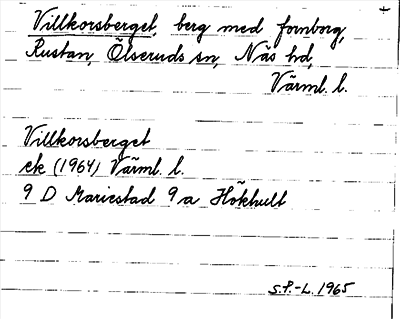 Villkorsberget, berg med fornborg,
Rustan, Ölseruds sn, Näs hd,
Värml. l.
Villkorsberget
ek (1964) Värml. l.
9 D Mariestad 9 a Hökhult
S.P.-L. 1965